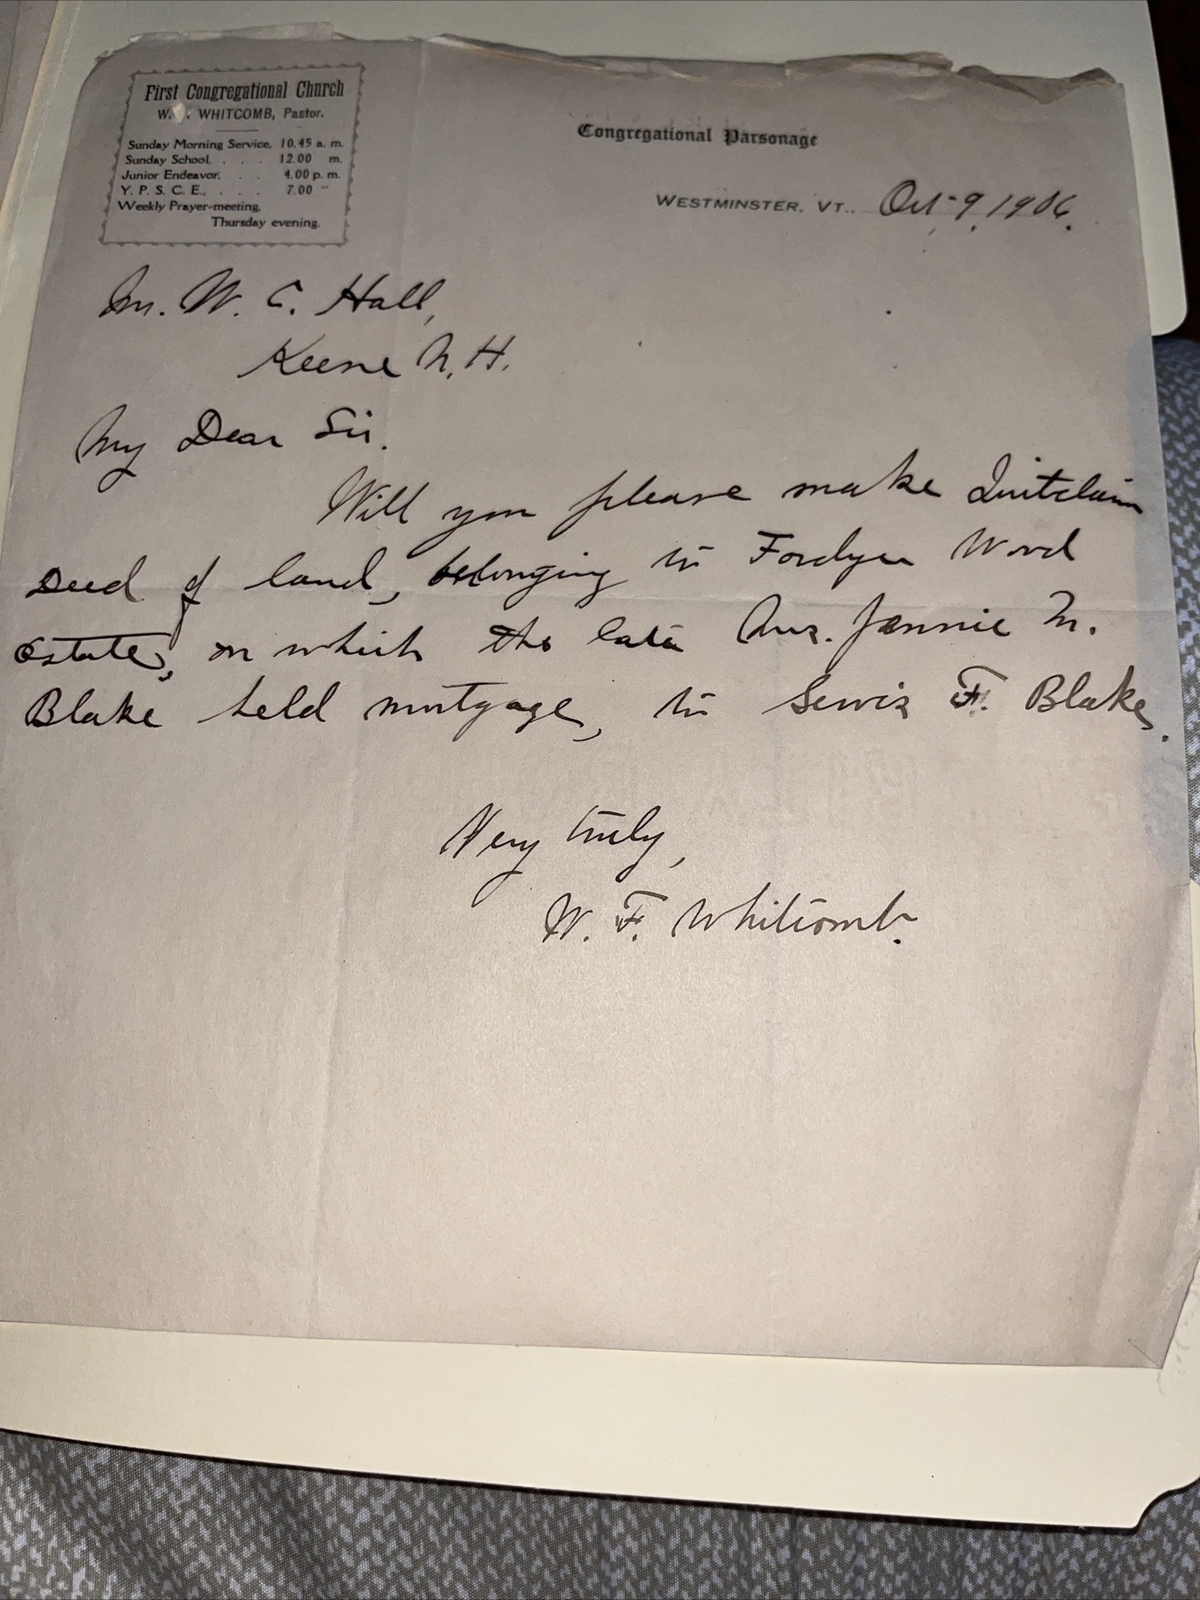 First Congregational Church
W. WHITCOMB, Pastor.
Sunday Morning Service, 10.45 a. m.
Sunday School, . . . 12.00 m.
Junior Endeavor, . . 4.00 p. m.
Y. P. S. C. E., . . . 7.00 "
Weekly Prayer-meeting,
Thursday evening.
Congregational Parsonage
WESTMINSTER, VT., Oct-9, 1906.
Mr. W. C. Hall,
Keene N. H.
My Dear Sir.
Will you please make Quitclaim
Deed of land, belonging to Fordyce Wood
Estate, on which the late Mrs. Jennie M.
Blake held mortgage, to Lewis F. Blake.
Very truly,
W. F. Whitcomb.